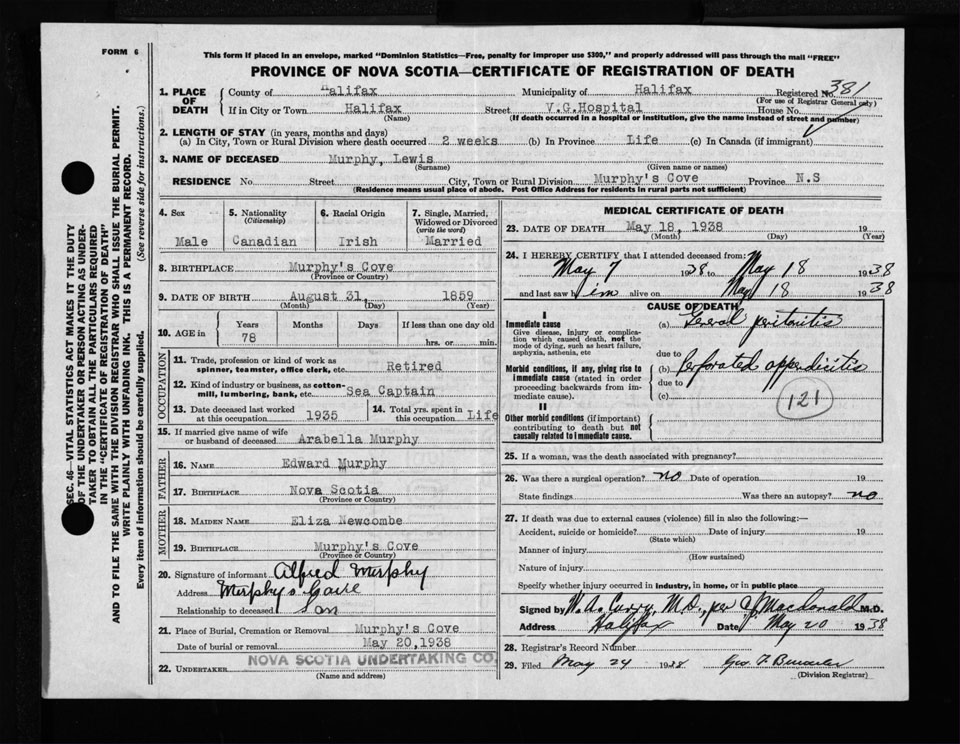 FORM 6
This form if placed in an envelope, marked "Dominion Statistics—Free, penalty for improper use $300," and properly addressed will pass through the mail "FREE"
PROVINCE OF NOVA SCOTIA—CERTIFICATE OF REGISTRATION OF DEATH
SEC. 46—VITAL STATISTICS ACT MAKES IT THE DUTY
OF THE UNDERTAKER OR PERSON ACTING AS UNDER-
TAKER TO OBTAIN ALL THE PARTICULARS REQUIRED
IN THE "CERTIFICATE OF REGISTRATION OF DEATH"
AND TO FILE THE SAME WITH THE DIVISION REGISTRAR WHO SHALL ISSUE THE BURIAL PERMIT.
WRITE PLAINLY WITH UNFADING INK. THIS IS A PERMANENT RECORD.
Every item of information should be carefully supplied. (See reverse side for instructions.)
1. PLACE OF DEATH County of Halifax Municipality of Halifax Registered No. 381
(For use of Registrar General only)
If in City or Town Halifax Street V.G.Hospital House No.
(Name) (If death occurred in a hospital or institution, give the name instead of street and number)
2. LENGTH OF STAY (in years, months and days)
(a) In City, Town or Rural Division where death occurred 2 weeks (b) In Province Life (c) In Canada (if immigrant)
3. NAME OF DECEASED Murphy, Lewis
(Surname) (Given name or names)
RESIDENCE No. Street City, Town or Rural Division Murphy's Cove Province N.S
(Residence means usual place of abode. Post Office Address for residents in rural parts not sufficient)
4. Sex Male
5. Nationality (Citizenship) Canadian
6. Racial Origin Irish
7. Single, Married, Widowed or Divorced (write the word) Married
8. BIRTHPLACE Murphy's Cove
(Province or Country)
9. DATE OF BIRTH August 31, 1859
(Month) (Day) (Year)
10. AGE in Years Months Days If less than one day old
78 hrs. or min.
OCCUPATION
11. Trade, profession or kind of work as
spinner, teamster, office clerk, etc. Retired
12. Kind of industry or business, as cotton-
mill, lumbering, bank, etc. Sea Captain
13. Date deceased last worked at this occupation 1935
14. Total yrs. spent in this occupation Life
15. If married give name of wife
or husband of deceased Arabella Murphy
FATHER
16. NAME Edward Murphy
17. BIRTHPLACE Nova Scotia
(Province or Country)
MOTHER
18. MAIDEN NAME Eliza Newcombe
19. BIRTHPLACE Murphy's Cove
(Province or Country)
20. Signature of informant Alfred Murphy
Address Murphy's Cove
Relationship to deceased Son
21. Place of Burial, Cremation or Removal Murphy's Cove
Date of burial or removal May 20,1938
22. UNDERTAKER NOVA SCOTIA UNDERTAKING CO.
(Name and address)
MEDICAL CERTIFICATE OF DEATH
23. DATE OF DEATH May 18, 1938 19
(Month) (Day) (Year)
24. I HEREBY CERTIFY that I attended deceased from:
May 7 1938 to May 18 1938
and last saw him alive on May 18 1938
CAUSE OF DEATH
I
Immediate cause
Give disease, injury or complica-
tion which caused death, not the
mode of dying, such as heart failure,
asphyxia, asthenia, etc
(a) General peritonitis
due to
Morbid conditions, if any, giving rise to
immediate cause (stated in order
proceeding backwards from im-
mediate cause).
(b) Perforated appendicitis
due to
(c)
121
II
Other morbid conditions (if important)
contributing to death but not
causally related to immediate cause.
25. If a woman, was the death associated with pregnancy?
26. Was there a surgical operation? no Date of operation 19
State findings Was there an autopsy? no
27. If death was due to external causes (violence) fill in also the following:—
Accident, suicide or homicide? Date of injury 19
(State which)
Manner of injury
(How sustained)
Nature of injury
Specify whether injury occurred in industry, in home, or in public place
Signed by W. A. Curry, M.D., per Macdonald M.D.
Address Halifax Date May 20 1938
28. Registrar's Record Number
29. Filed May 24 1938 Geo.
(Division Registrar)